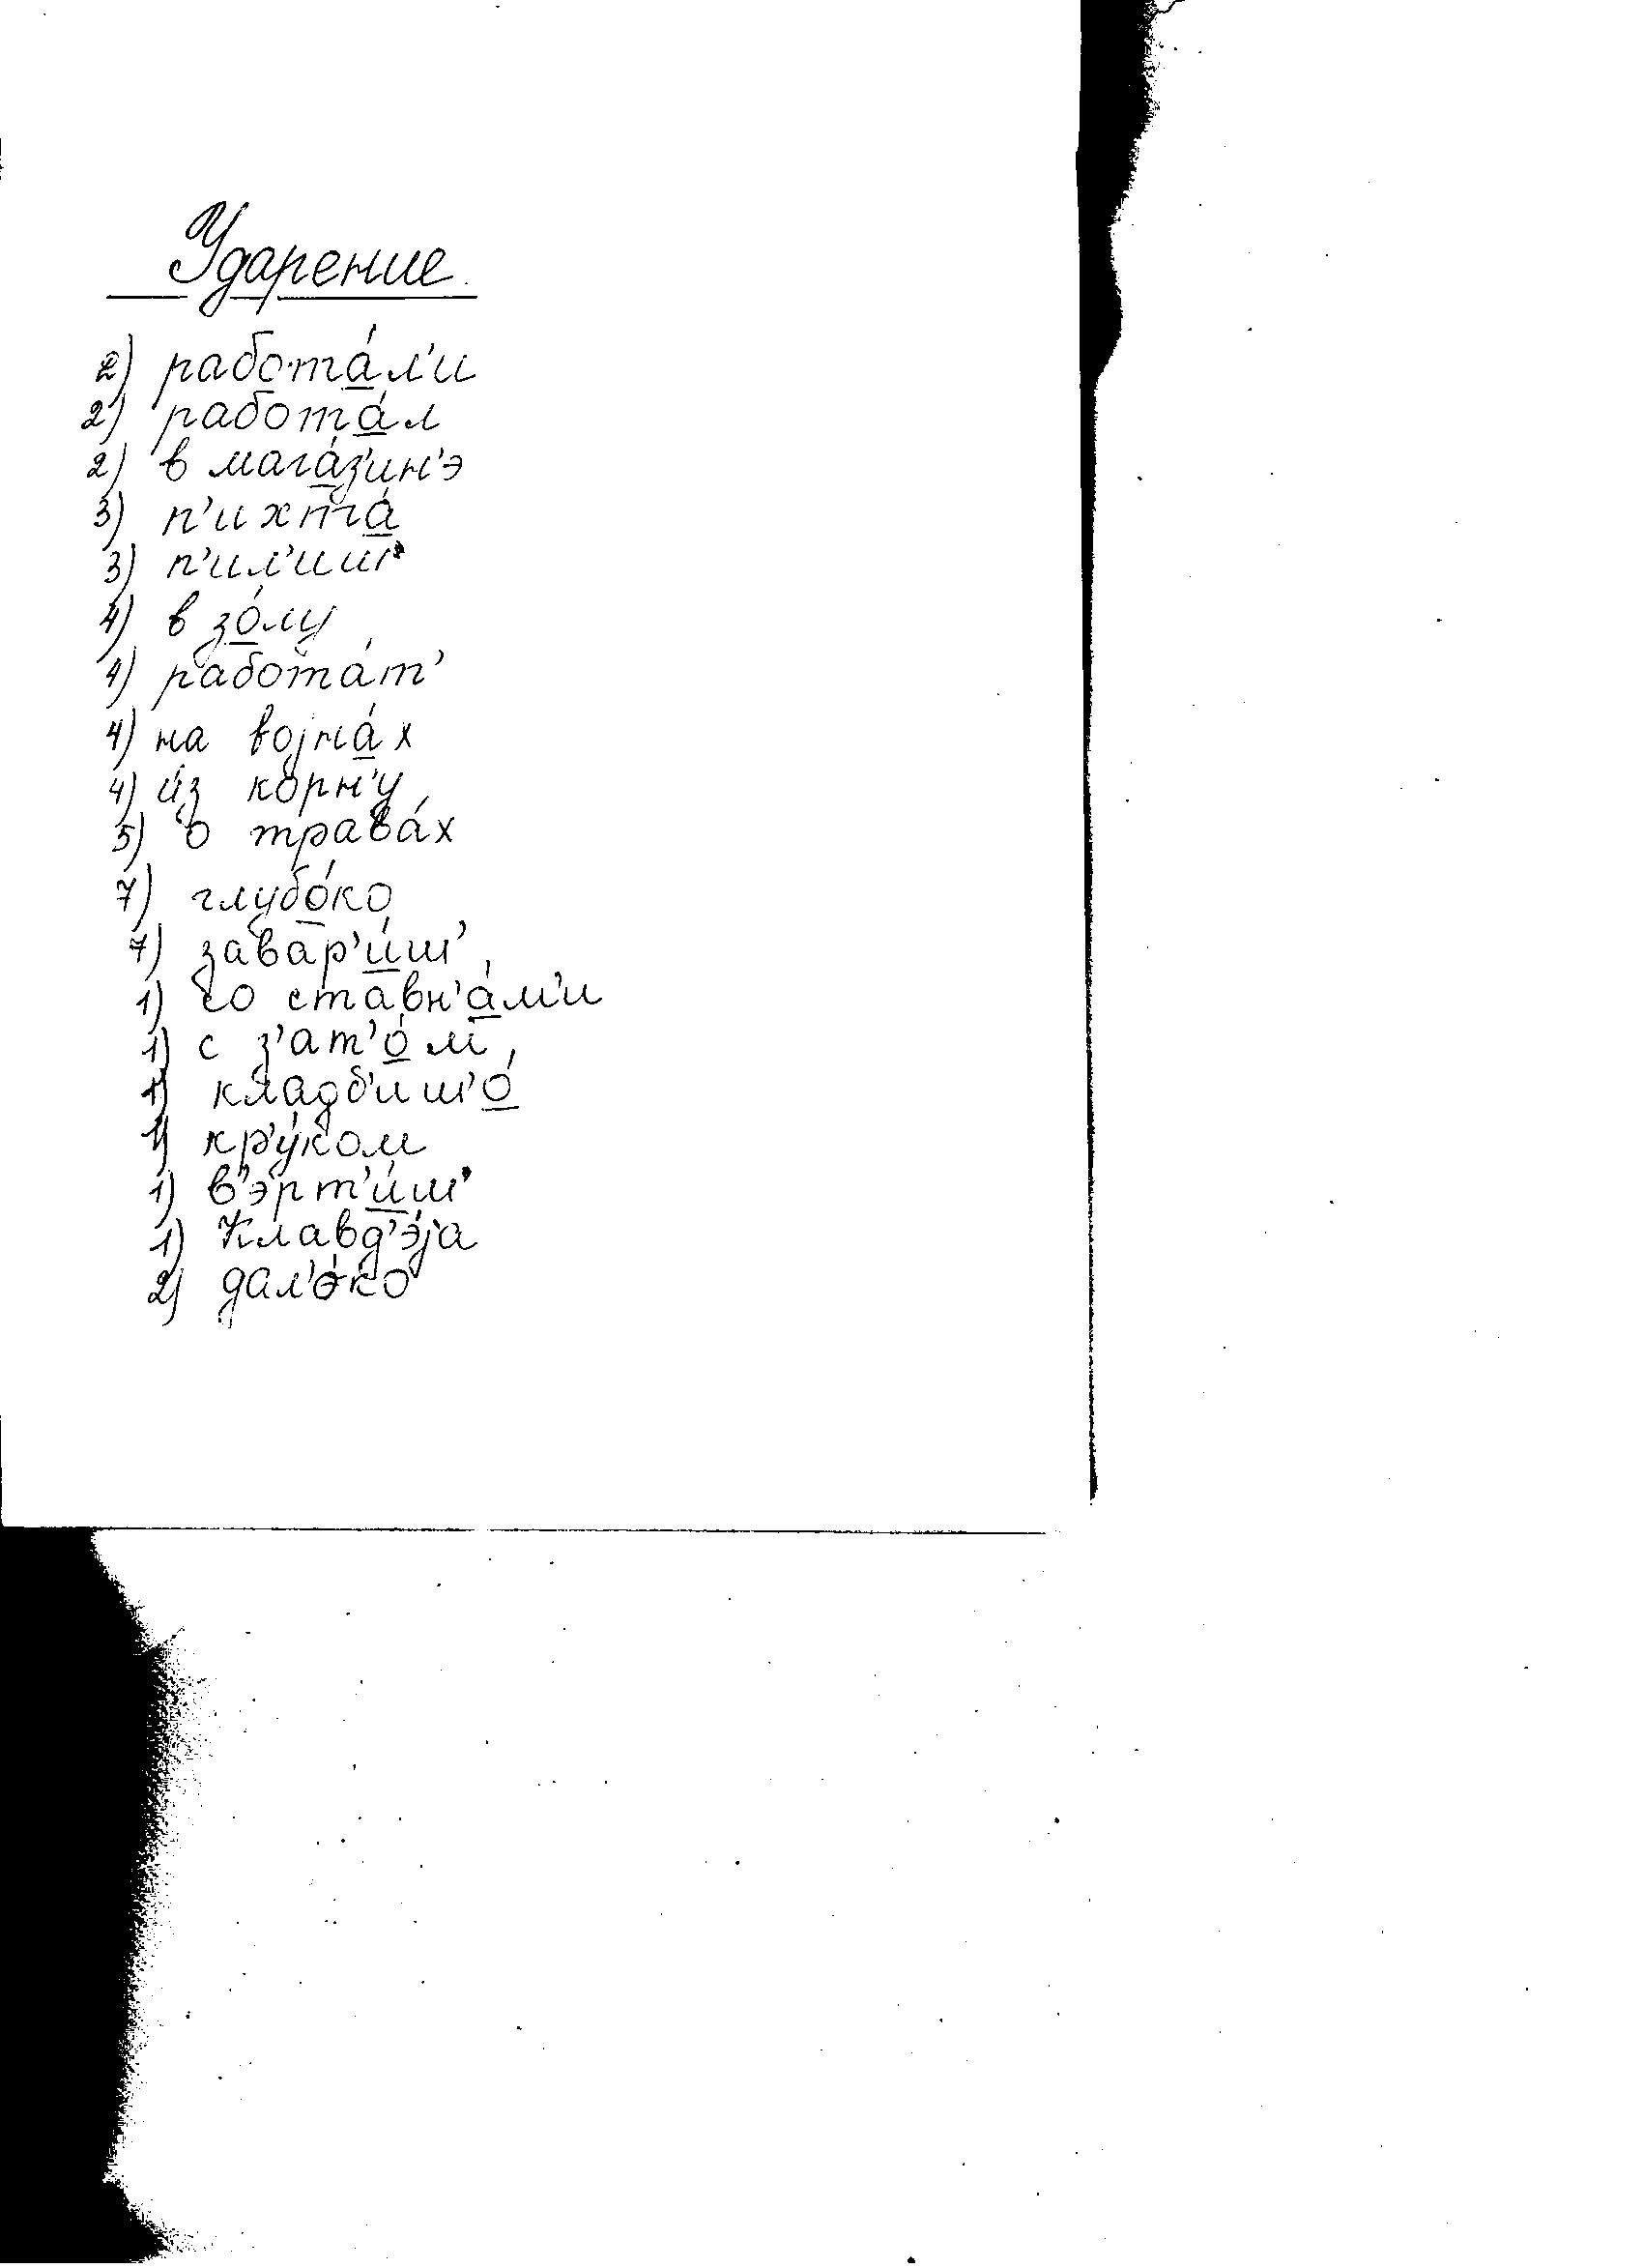 Ударение.
2) рабоmа́л'и
2) работа́л
2) в мага́з'ин'э
3) п'ихта́
3) п'ил'и́ш'
4) в зо́лу
4) работа́т'
4) на војна́х
4) и́з корн'у
5) о трава́х
7) глубо́ко
7) завар'и́ш'
1) со ставн'а́м'и
1) с з'ат'о́м
1) кладб'иш'о́
1) кр'у́ком
1) в'эрт'и́ш'
1) Клавд'э́jа
2) дал'о́ко